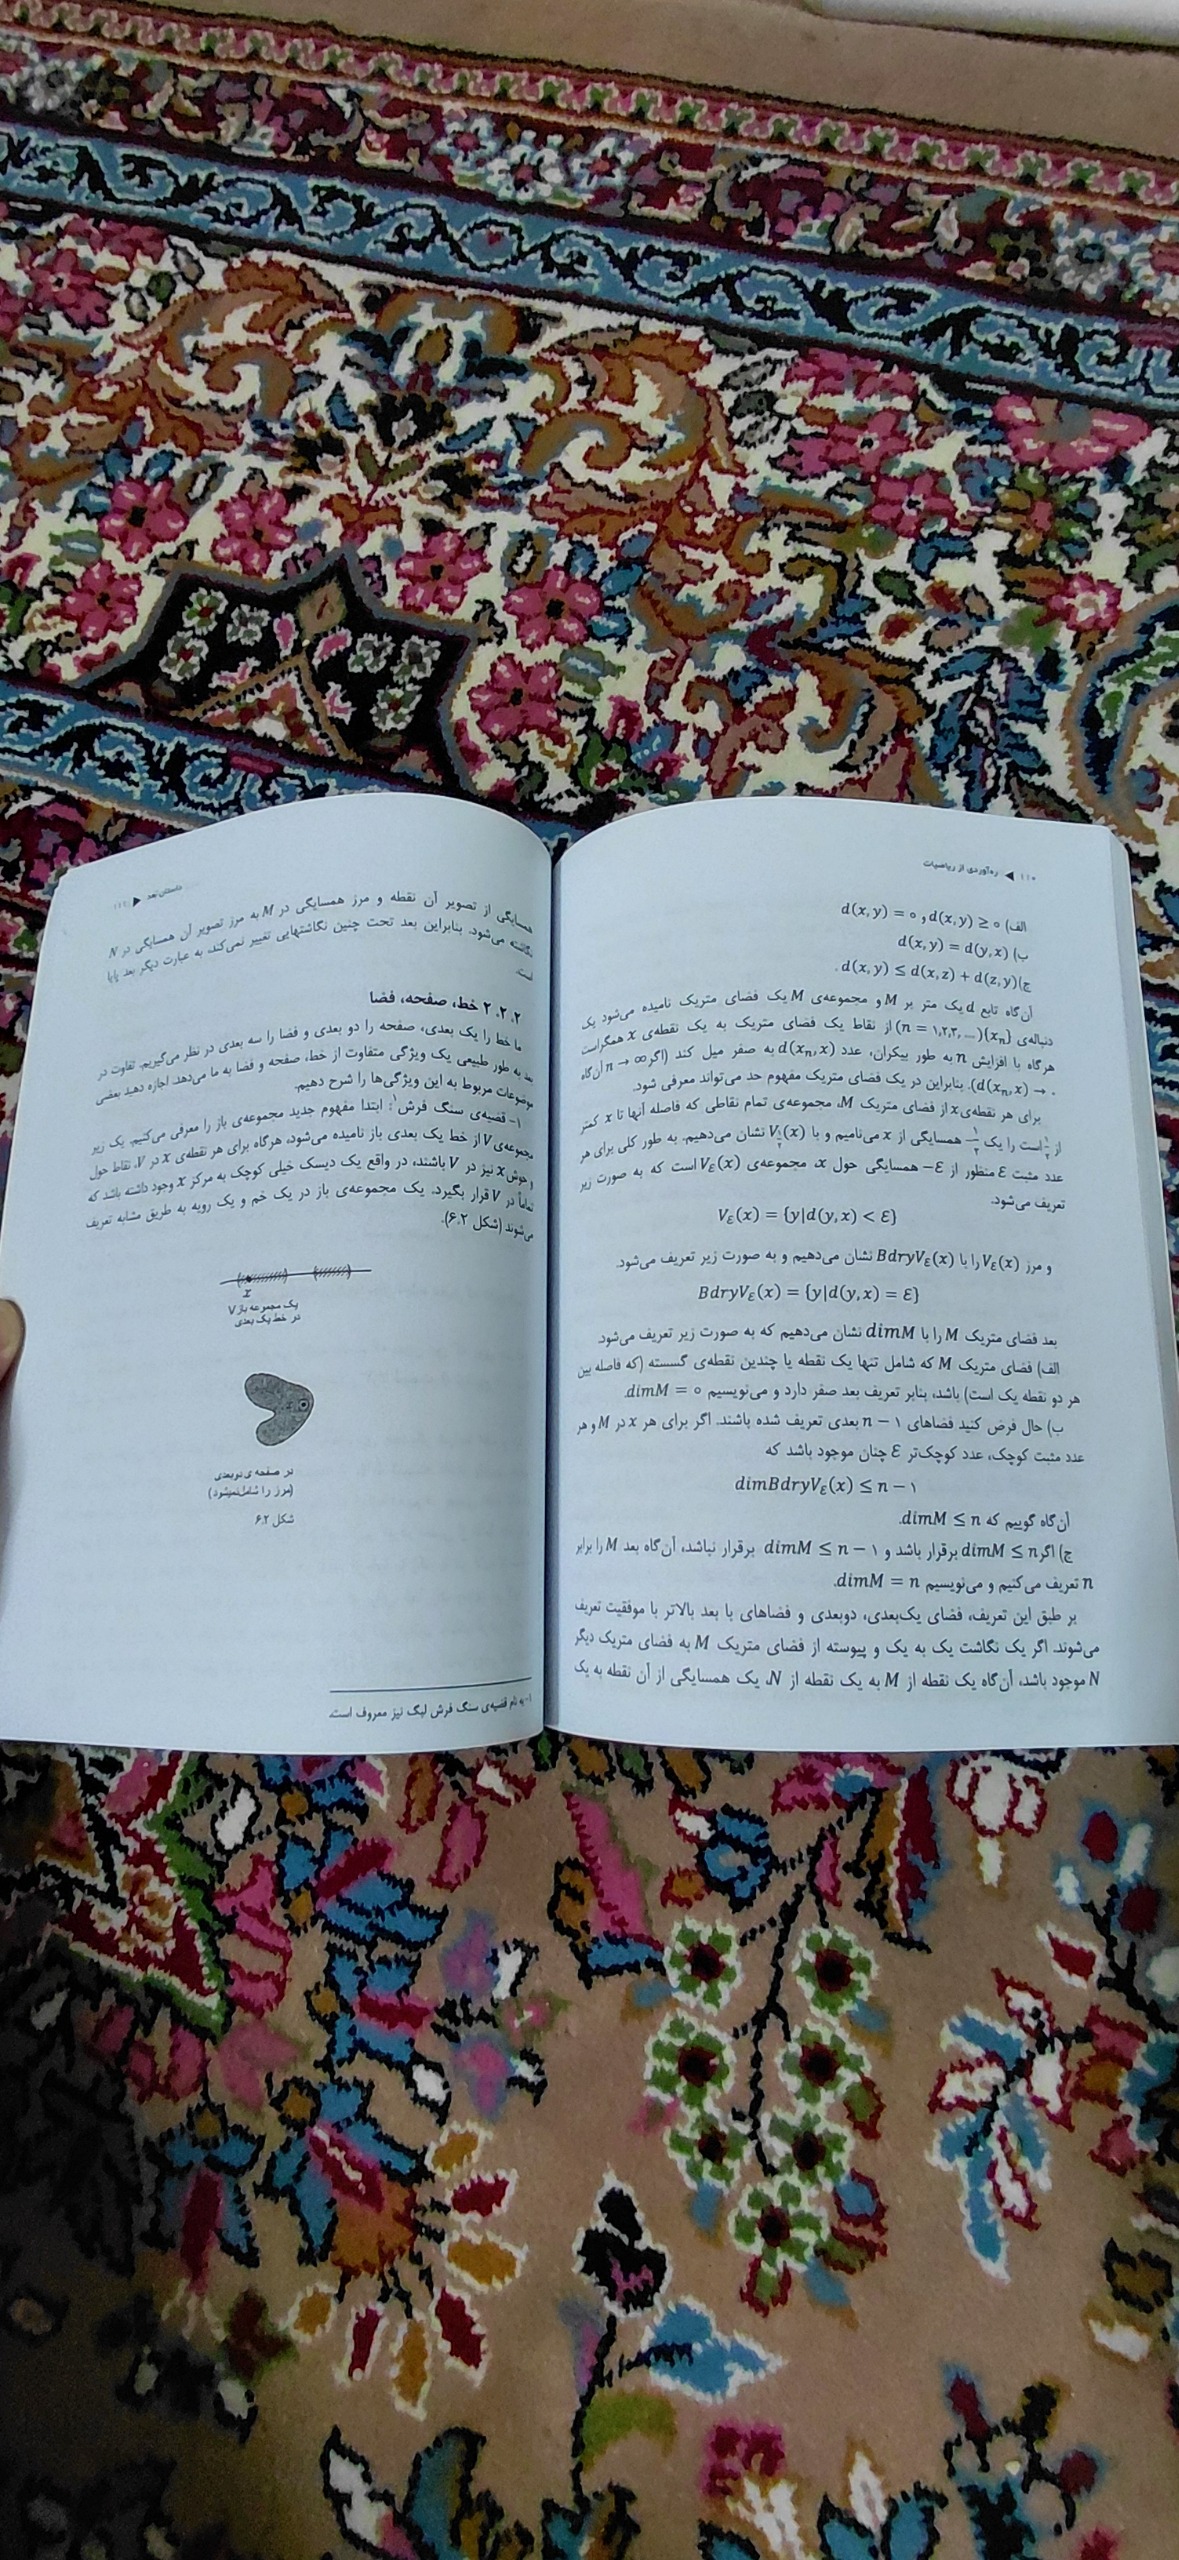 ۱۱۰ ◀ ره‌آوردی از ریاضیات
الف) d(x,y) ≥ ۰ و d(x,y) = ۰
ب) d(x,y) = d(y,x)
ج) d(x,y) ≤ d(x,z) + d(z,y).
آن‌گاه تابع d یک متر بر M و مجموعه‌ی M یک فضای متریک نامیده می‌شود یک
دنباله‌ی {xₙ} (n = ۱,۲,۳,...) از نقاط یک فضای متریک به یک نقطه‌ی x همگراست
هرگاه با افزایش n به طور بیکران، عدد d(xₙ,x) به صفر میل کند (اگر n → ∞ آن‌گاه
d(xₙ,x) → ۰). بنابراین در یک فضای متریک مفهوم حد می‌تواند معرفی شود.
برای هر نقطه‌ی x از فضای متریک M، مجموعه‌ی تمام نقاطی که فاصله آنها تا x کمتر
از ½ است را یک ½− همسایگی از x می‌نامیم و با V½(x) نشان می‌دهیم. به طور کلی برای هر
عدد مثبت Ɛ منظور از Ɛ− همسایگی حول x، مجموعه‌ی VƐ(x) است که به صورت زیر
تعریف می‌شود.
VƐ(x) = {y|d(y,x) < Ɛ}
و مرز VƐ(x) را با BdryVƐ(x) نشان می‌دهیم و به صورت زیر تعریف می‌شود.
BdryVƐ(x) = {y|d(y,x) = Ɛ}
بعد فضای متریک M را با dimM نشان می‌دهیم که به صورت زیر تعریف می‌شود.
الف) فضای متریک M که شامل تنها یک نقطه یا چندین نقطه‌ی گسسته (که فاصله بین
هر دو نقطه یک است) باشد، بنابر تعریف بعد صفر دارد و می‌نویسیم dimM = ۰.
ب) حال فرض کنید فضاهای n − ۱ بعدی تعریف شده باشند. اگر برای هر x در M و هر
عدد مثبت کوچک، عدد کوچک‌تر Ɛ چنان موجود باشد که
dimBdryVƐ(x) ≤ n − ۱
آن‌گاه گوییم که dimM ≤ n.
ج) اگر dimM ≤ n برقرار باشد و dimM ≤ n − ۱ برقرار نباشد، آن‌گاه بعد M را برابر
n تعریف می‌کنیم و می‌نویسیم dimM = n.
بر طبق این تعریف، فضای یک‌بعدی، دوبعدی و فضاهای با بعد بالاتر با موفقیت تعریف
می‌شوند. اگر یک نگاشت یک به یک و پیوسته از فضای متریک M به فضای متریک دیگر
N موجود باشد، آن‌گاه یک نقطه از M به یک نقطه از N، یک همسایگی از آن نقطه به یک
داستان بُعد ◀ ۱۱۱
همسایگی از تصویر آن نقطه و مرز همسایگی در M به مرز تصویر آن همسایگی در N
نگاشته می‌شود. بنابراین بعد تحت چنین نگاشتهایی تغییر نمی‌کند، به عبارت دیگر بعد پایا
است.
۲.۲.۲ خط، صفحه، فضا
ما خط را یک بعدی، صفحه را دو بعدی و فضا را سه بعدی در نظر می‌گیریم. تفاوت در
بعد به طور طبیعی یک ویژگی متفاوت از خط، صفحه و فضا به ما می‌دهد. اجازه دهید بعضی
موضوعات مربوط به این ویژگی‌ها را شرح دهیم.
۱- قضیه‌ی سنگ فرش¹: ابتدا مفهوم جدید مجموعه‌ی باز را معرفی می‌کنیم. یک زیر
مجموعه‌ی V از خط یک بعدی باز نامیده می‌شود، هرگاه برای هر نقطه‌ی x در V، نقاط حول
و حوش x نیز در V باشند، در واقع یک دیسک خیلی کوچک به مرکز x وجود داشته باشد که
تماماً در V قرار بگیرد. یک مجموعه‌ی باز در یک خم و یک رویه به طریق مشابه تعریف
می‌شوند (شکل ۶.۲).
x
یک مجموعه باز V
در خط یک بعدی
در صفحه ی دوبعدی
(مرز را شامل نمیشود)
شکل ۶.۲
۱- به نام قضیه‌ی سنگ فرش لبگ نیز معروف است.